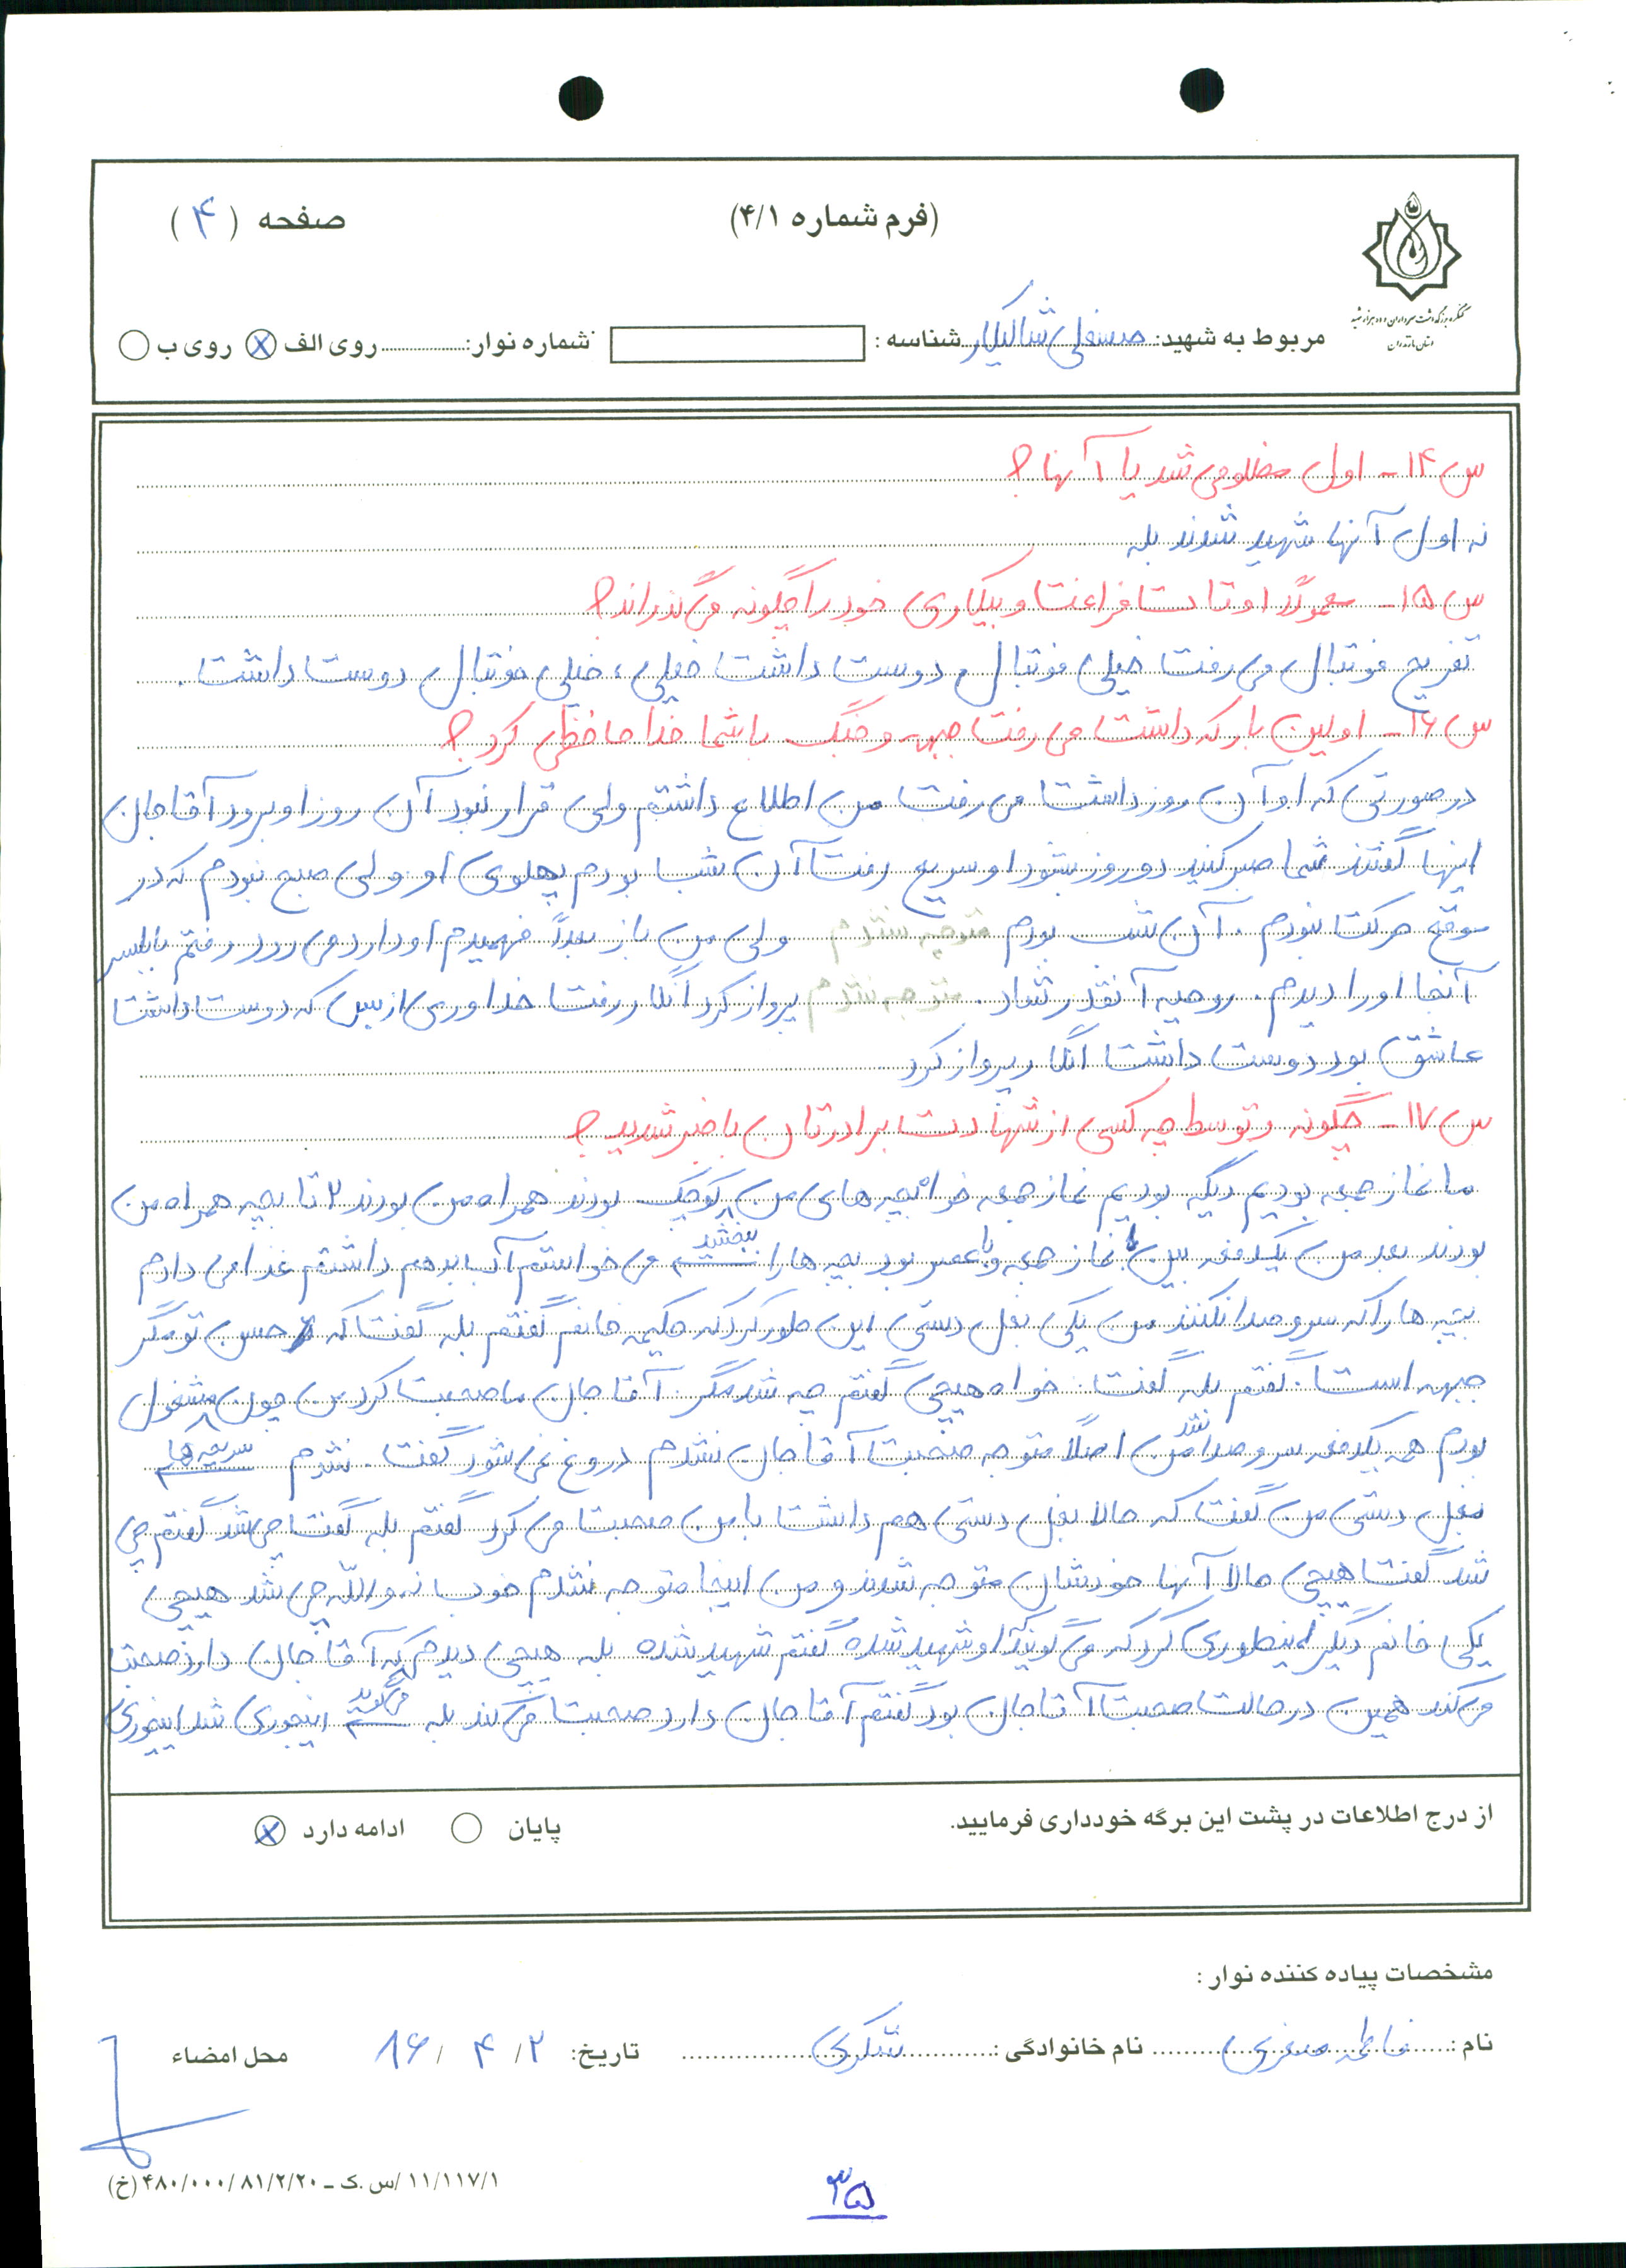 (فرم شماره ۴/۱)
صفحه (۴)
کنگره بزرگداشت سرداران و ده هزار شهید
استان مازندران
مربوط به شهید: حسنعلی شالیکار شناسه: شماره نوار: روی الف روی ب
س ۱۴- اول مظلومی شد یا آنها؟
نه اول آنها شهید شدند بله
س ۱۵- معمولاً اوقات فراغت و بیکاری خود را چگونه می گذراند؟
تفریح فوتبال می رفت خیلی فوتبال دوست داشت خیلی، خیلی فوتبال دوست داشت.
س ۱۶- اولین بار که داشت می رفت جبهه و جنگ با شما خداحافظی کرد؟
در صورتی که او آن روز داشت می رفت من اطلاع داشتم ولی قرار نبود آن روز او برود آقا جان
اینها گفتند شما صبر کنید دو روز بشود او سریع رفت آن شب بودم پهلوی او ولی صبح نبودم که در
موقع حرکت نبودم. آن شب بودم متوجه نشدم ولی من باز بعداً فهمیدم او دارد می رود رفتم بابلسر
آنجا او را دیدم. روحیه آنقدر شاد. متوجه نشدم پرواز کرد انگار رفت خداوری از بس که دوست داشت
عاشق بود دوست داشت انگار پرواز کرد
س ۱۷- چگونه و توسط چه کسی از شهادت برادرتان با خبر شدید؟
ما نماز جمعه بودیم دیگه بودیم نماز جمعه بچه های من کوچک بودند همراه من بودند ۲ تا بچه همراه من
بودند بعد من یکدفعه بین نماز جمعه و یا عصر بود بچه ها را ببخشید می خواستم آب بدهم داشتم غذا می دادم
بچه ها را که سر و صدا نکنند من یکی بغل دستی این طور کرد که حکیمه خانم گفتم بله گفت که حسن تو مگر
جبهه است. گفتم بله گفت: خواه هیچی گفتم چه شد مگر. آقا جان ما صحبت کرد من چون مشغول
بودم همه یکدفعه سر و صدا شد من اصلاً متوجه صحبت آقا جان نشدم دروغ نمی شود گفت. نشدم سر بچه ها
بغل دستی من گفت که حالا بغل دستی هم داشت با من صحبت می کرد گفتم بله گفت چی شد گفتم چی
شد گفت هیچی حالا آنها خودشان متوجه شدند و من اینجا متوجه نشدم خوب نه والله چی شد هیچی
یکی خانم دیگر اینطوری کرد که می گویند او شهید شده گفتم شهید شده بله هیچی دیدم که آقا جان دارد صحبت
می کند همین در حالت صحبت آقا جان بود گفتم آقا جان دارد صحبت می کند بله می گوید اینجوری شد اینجوری
از درج اطلاعات در پشت این برگه خودداری فرمایید.
پایان ادامه دارد
مشخصات پیاده کننده نوار:
نام: فاطمه صغری نام خانوادگی: شکری تاریخ: ۸۶/۴/۲ محل امضاء
۱۱/۱۱۷/۱/س.ک ـ ۴۸۰/۰۰۰/۸۱/۲/۲۰ (خ)
۳۵